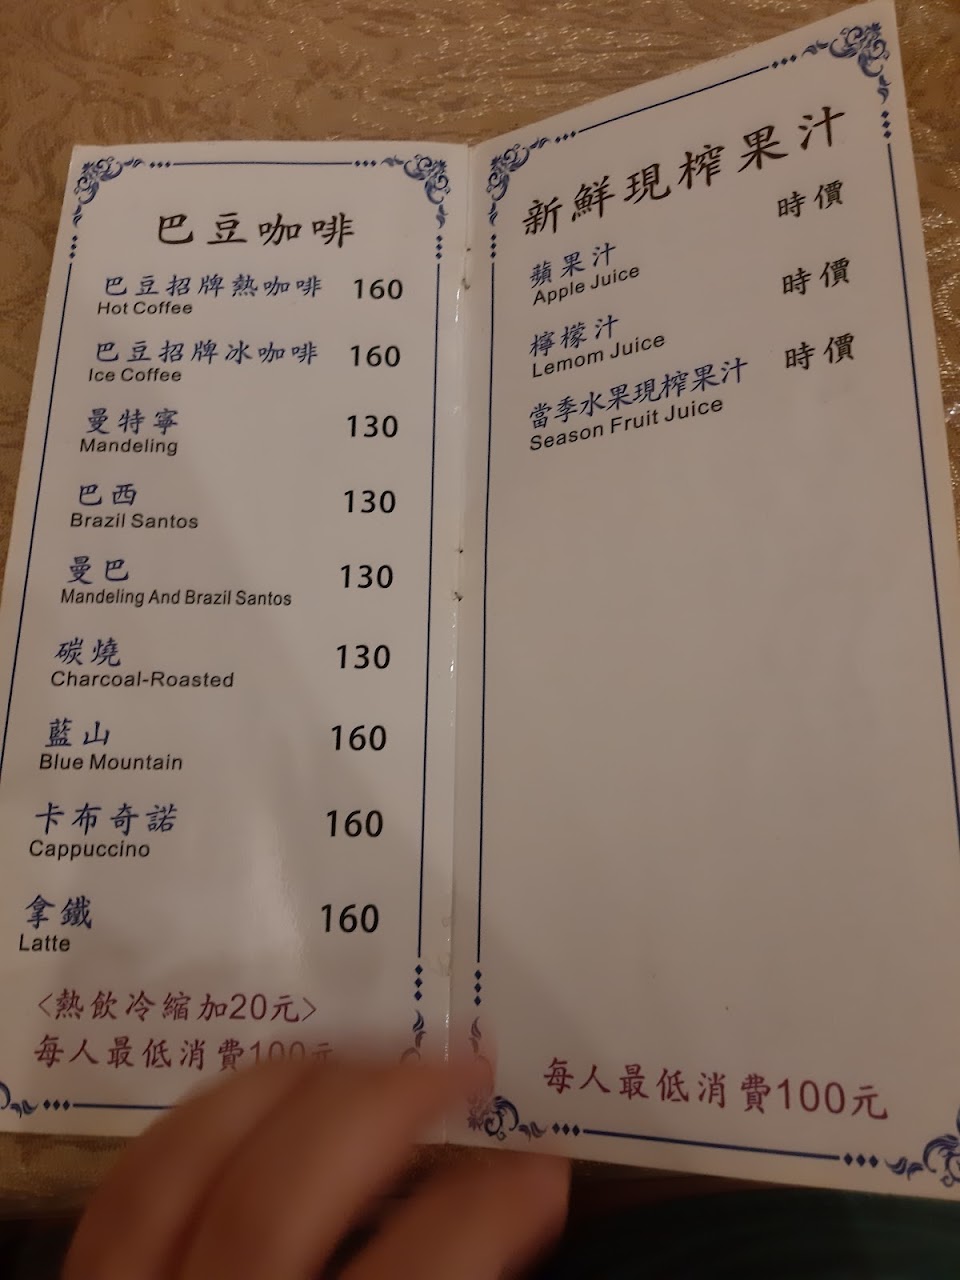 巴豆咖啡
巴豆招牌熱咖啡 160
Hot Coffee
巴豆招牌冰咖啡 160
Ice Coffee
曼特寧 130
Mandeling
巴西 130
Brazil Santos
曼巴 130
Mandeling And Brazil Santos
碳燒 130
Charcoal-Roasted
藍山 160
Blue Mountain
卡布奇諾 160
Cappuccino
拿鐵 160
Latte
<熱飲冷縮加20元>
每人最低消費100元
新鮮現榨果汁
蘋果汁 時價
Apple Juice
檸檬汁 時價
Lemom Juice
當季水果現榨果汁 時價
Season Fruit Juice
每人最低消費100元